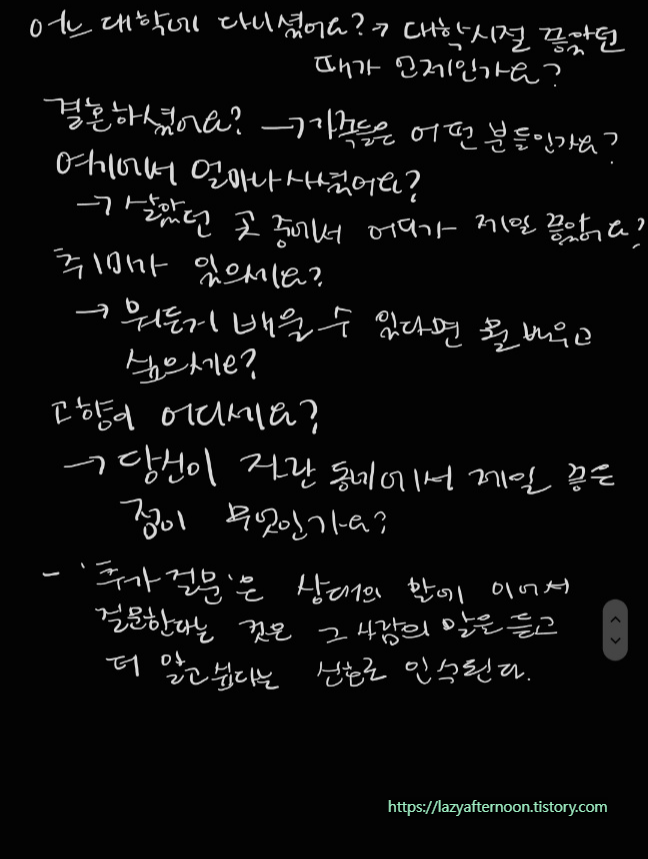 어느 대학에 다니셨어요? → 대학시절 좋았던
때가 언제인가요?
결혼하셨어요? → 가족들은 어떤 분들인가요?
여기에서 얼마나 사셨어요?
→ 살았던 곳 중에서 어디가 제일 좋았어요?
취미가 있으세요?
→ 뭐든지 배울 수 있다면 뭘 배우고
싶으세요?
고향이 어디세요?
→ 당신이 자란 동네에서 제일 좋은
점이 무엇인가요?
- '추가 질문'은 상대의 말에 이어서
질문한다는 것은 그 사람의 말을 듣고
더 알고 싶다는 신호로 인식된다.
https://lazyafternoon.tistory.com